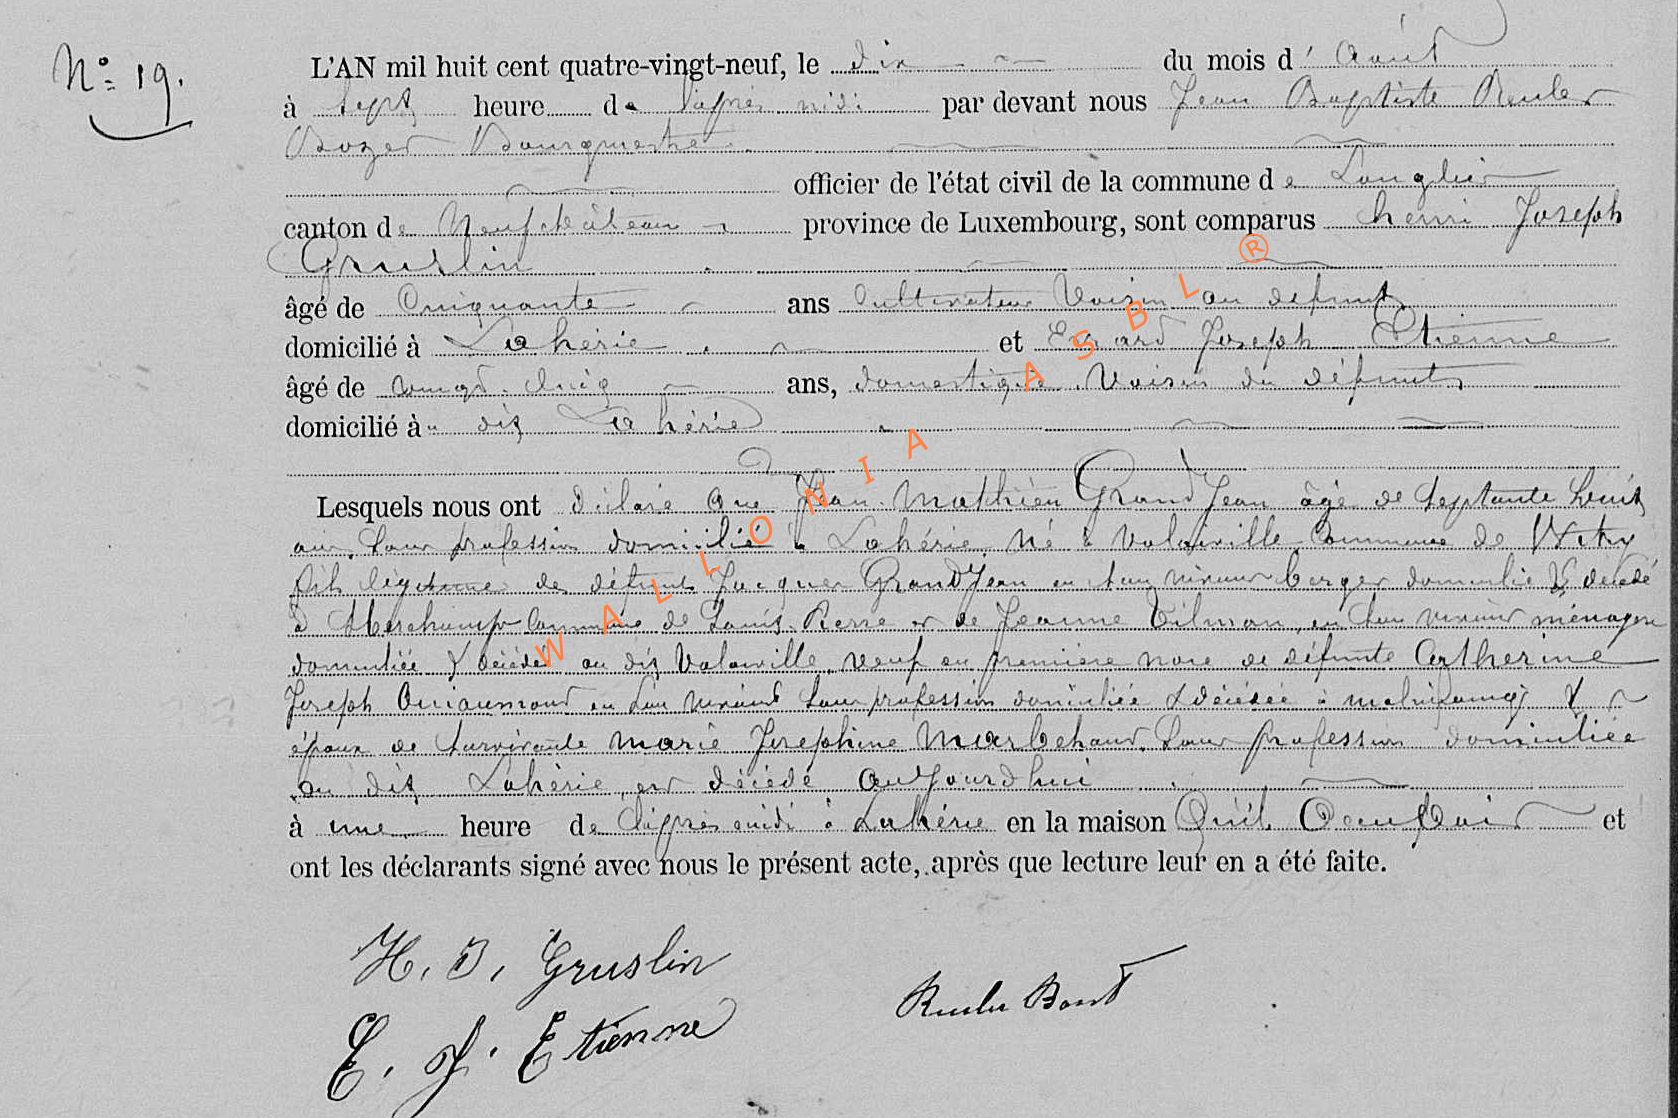 N° 19.
L'AN mil huit cent quatre-vingt-neuf, le dix du mois d' Août
à sept heure de l'après midi par devant nous Jean Baptiste Reuler
Bourgmestre
officier de l'état civil de la commune de Longlier
canton de Neufchâteau province de Luxembourg, sont comparus henri Joseph
Gruslin
âgé de Cinquante ans Cultivateur Voisin au défunt
domicilié à Lahérie et Evrard Joseph Etienne
âgé de vingt cinq ans, domestique Voisin du défunt
domicilié à dit Lahérie
Lesquels nous ont déclaré que Jean Mathieu GrandJean âgé de septante huit
ans, sans profession domicilié à Lahérie, né à Volaiville Commune de Witry
fils légitime de défunts Jacques GrandJean en son vivant berger domicilié & décédé
à Commune de Louis Pierre et de Jeanne Tilman, en son vivant ménagère
domiciliée & décédée au dit Volaiville, veuf en première noce de défunte Catherine
Joseph en son vivant sans profession domiciliée & décédée à &
époux de survivante Marie Josephine Marbehant. Sans profession domiciliée
au dit Lahérie, est décédé aujourdhui
à une heure de l'après midi à Lahérie en la maison Qu'il Occupait et
ont les déclarants signé avec nous le présent acte, après que lecture leur en a été faite.
H. J. Gruslin
E. J. Etienne
Reuler Bount
WALLONIA ASBL ®